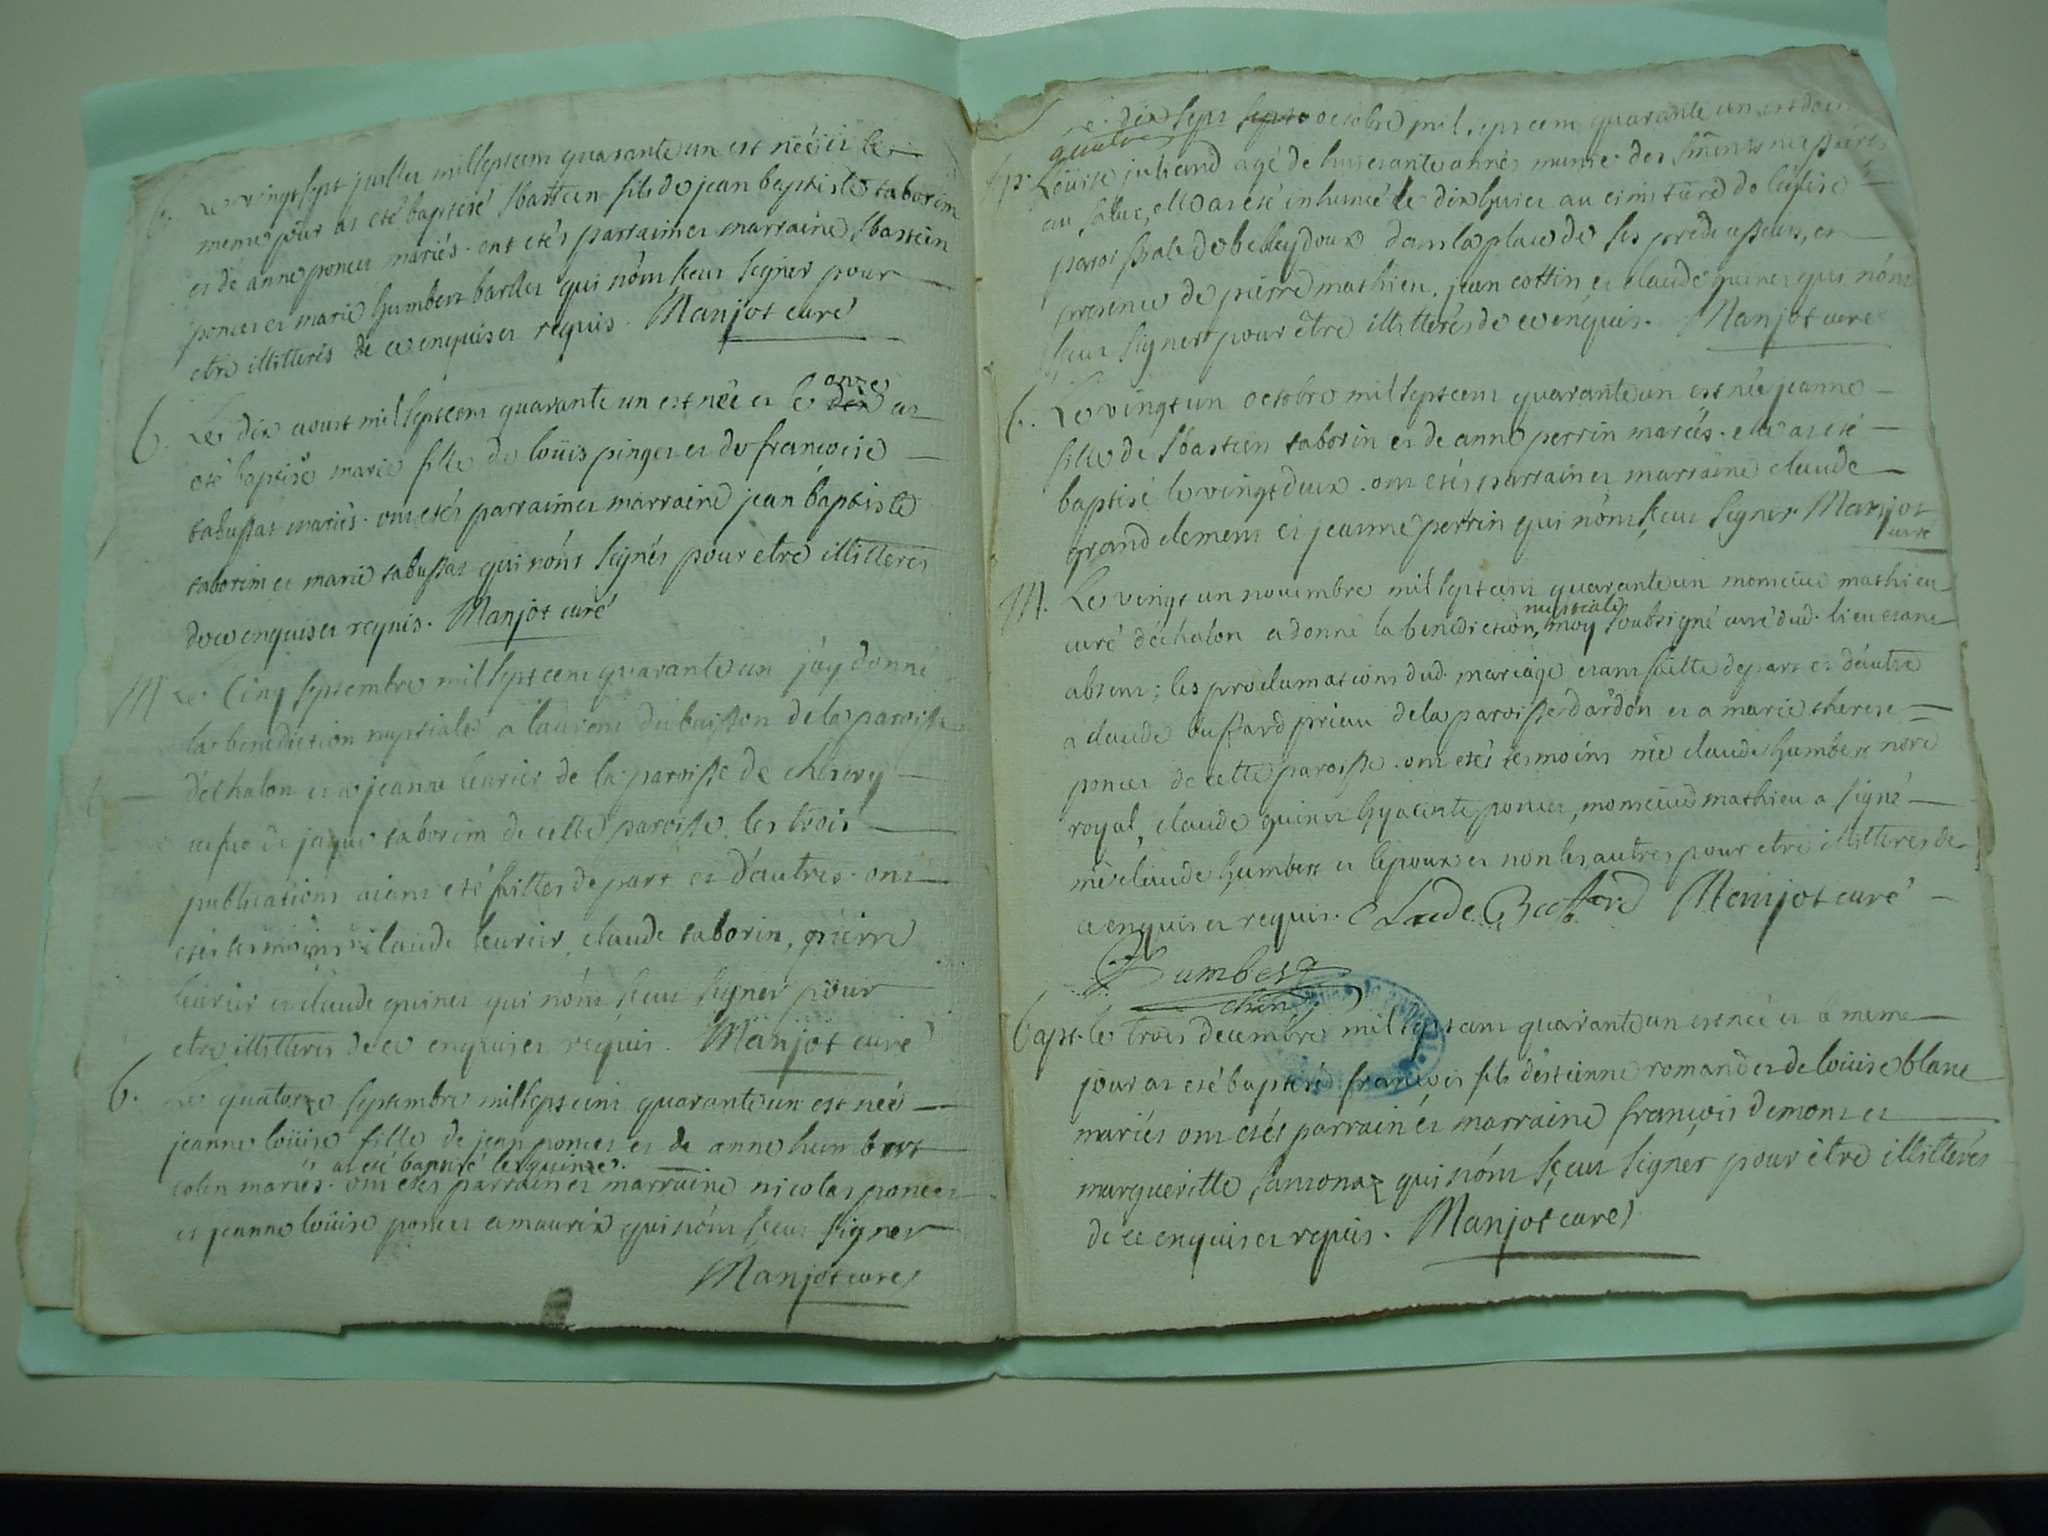 b. Le vingt sept juillet mil sept cent quarante un est né et le
meme jour at eté baptisé sbastien fils de jean baptiste taborin
et de anne poncet mariés. ont etés parrain et marraine sbastien
poncet et marie humbert barllet qui n'ont sceu signer pour
etre illitterés de ce enquis et requis. Manjot curé
b. Le dix aoust mil sept cent quarante un est née et le dix onze at
eté baptisé marie fille de loüis pinget et de francoise
tabussat mariés. ont etés parrain et marraine jean baptiste
taborin et marie tabussat qui n'ont signés pour etre illitteres
de ce enquis et requis. Manjot curé
M Le Cinq septembre mil sept cent quarante un j'ay donné
la benediction nuptiale a laurent du buisson de la paroisse
d'echalon et a jeanne leurier de la paroisse de chesery
de jaque taborin de cette paroisse. les trois
publications aiant eté faittes de part et d'autres. ont
etés temoins claude leurier, claude taborin, pierre
leurier et claude guinet qui n'ont sceu signer pour
etre illitteres de ce enquis et requis. Manjot curé
b. Le quatorze septembre mil sept cent quarante un est neé
jeanne loüise fille de jean poncet et de anne humbert
at eté baptisé le quinze.
colin mariés. ont etés parrain et marraine nicolas poncet
et jeanne loüise poncet a maurix qui n'ont sceu signer
Manjot curé
Le dix sept sept octobre mil sept cent quarante un est
quatre
Loüise juliand agé de huictante années munie des
au salut, elle at eté inhumée le dix huict au cimitiere de l'eglise
paroissiale de belleydoux dans la place de ses predecesseurs, en
presence de pierre mathieu, jean cottin et claude guinet qui n'ont
sceu signer pour être illitterés de ce enquis. Manjot curé
b. Le vingt un octobre mil sept cent quarante un est née jeanne
fille de sbastien taborin et de anne perrin mariés. elle at eté
baptisé le vingt deux. ont etés parrain et marraine claude
grand clement et jeanne perrin qui n'ont sceu signer Manjot
curé
M. Le vingt un novembre mil sept cent quarante un monsieur mathieu
curé d'echalon a donné la benediction nuptiale, moy soubsigné curé dud. lieu etant
absent; les proclamations dud. mariage etant faitte de part et d'autre
a claude buffard prieau de la paroisse d'ardon et a marie therese
poncet de cette paroisse. ont etés temoins me claude humbert nore
royal, claude guinet hyacinte poncet, monsieur mathieu a signé
me claude humbert et l'epoux et non les autres pour etre illitteres de
ce enquis et requis. Claude Buffard Manjot curé
Humbert
Bapt. le trois decembre mil sept cent quarante un est né et a meme
jour at eté baptisé francois fils d'estienne romand et de loüise blanc
mariés ont etés parrain et marraine francois demont et
margueritte samonaz qui n'ont sceu signer pour être illitterés
de ce enquis et requis. Manjot curé